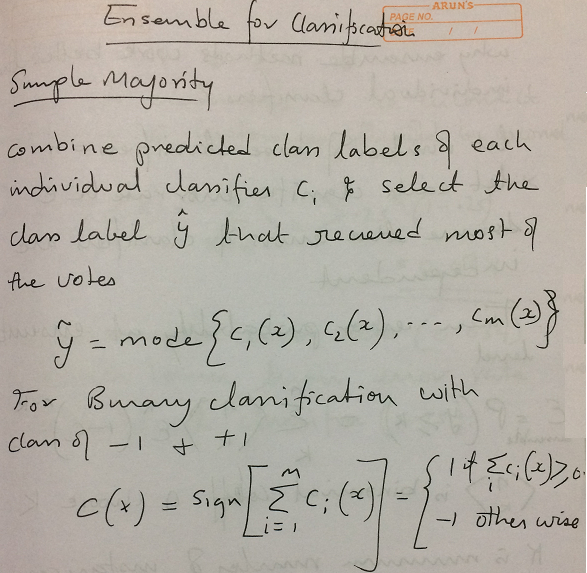 Ensemble for Classification
ARUN'S
PAGE NO.
/ /
Simple Majority
combine predicted class labels of each
individual classifier Ci & select the
class label ŷ that recieved most of
the votes
ỹ = mode { C₁(x), C₂(x), ..., Cm(x) }
For Binary classification with
class of -1 + +1
C(x) = sign [ ∑ᵢ₌₁ᵐ Cᵢ(x) ] = { 1 if ∑ᵢ Cᵢ(x) ≥ 0
-1 otherwise